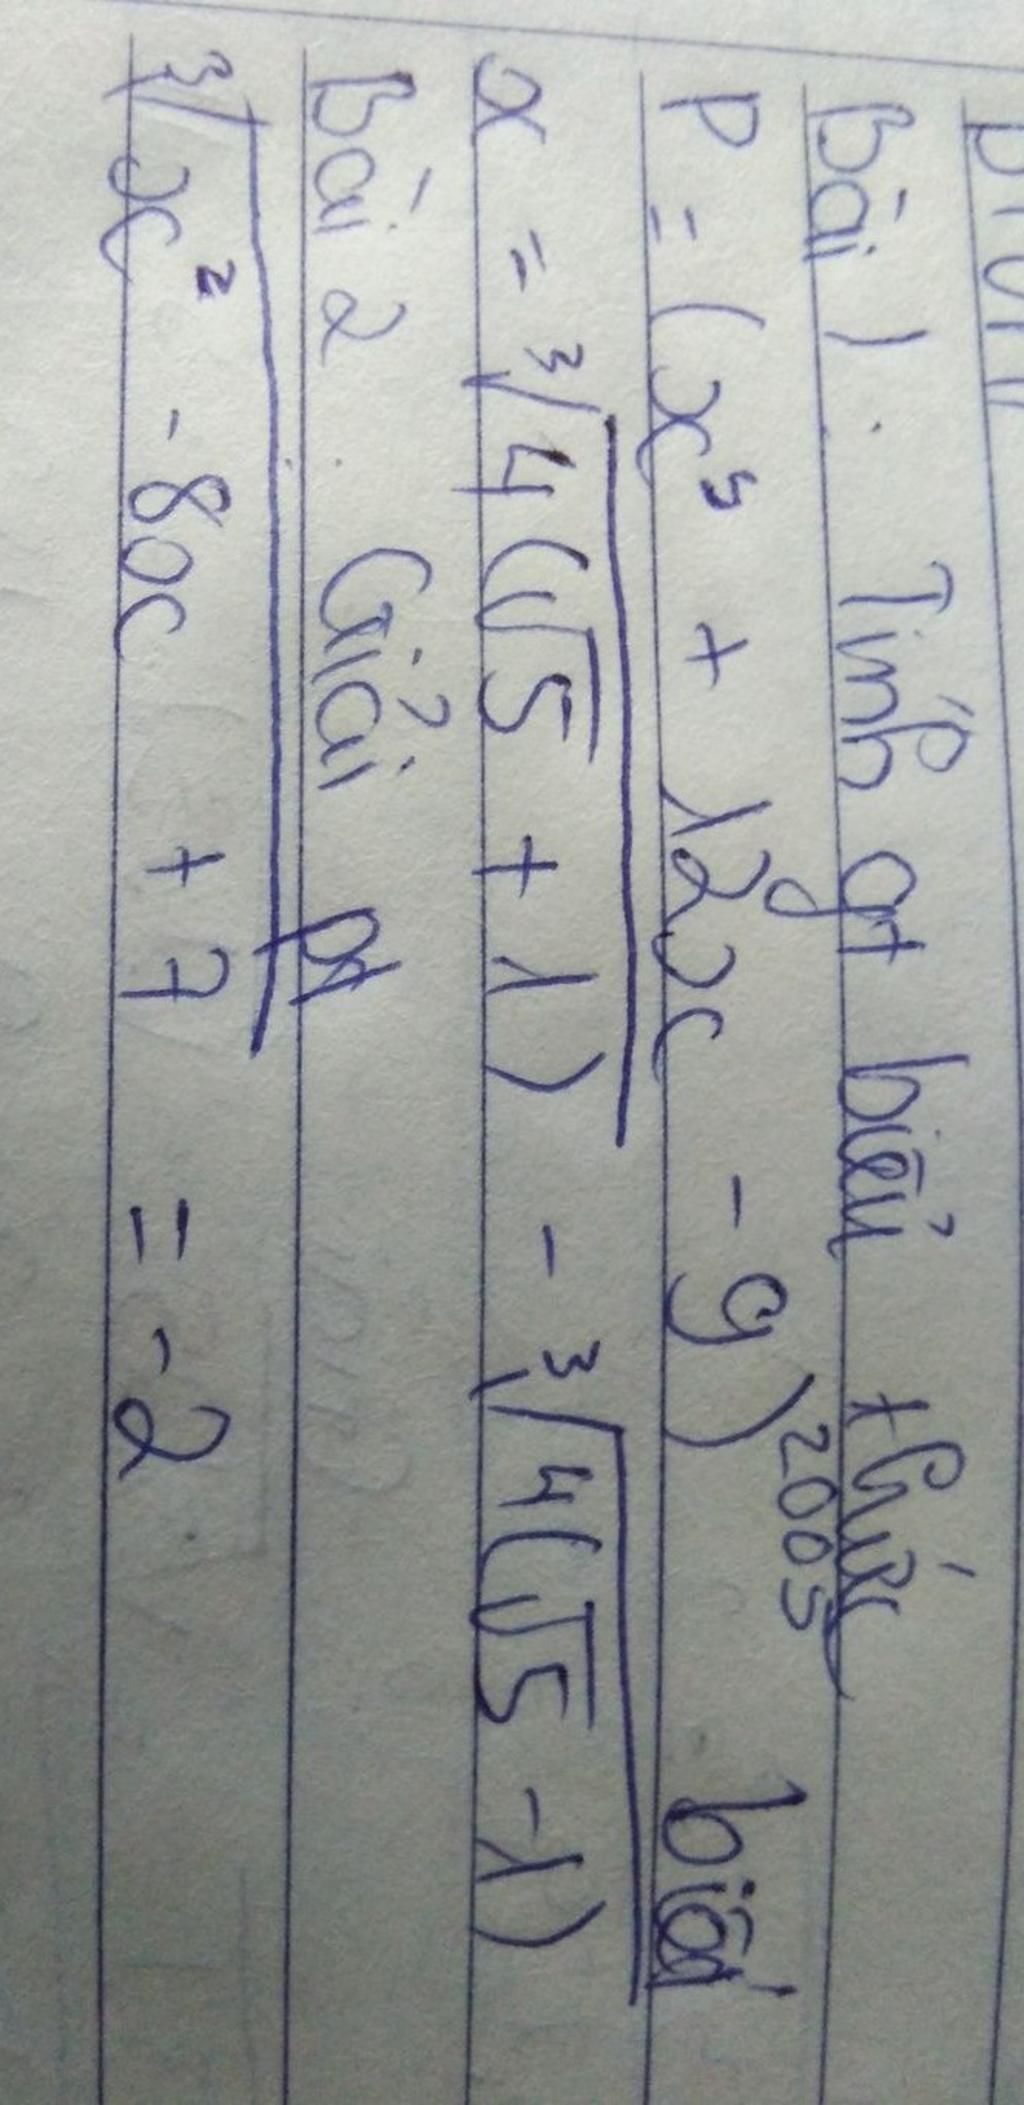 Bài 1. Tính gt biểu thức
P = (x³ + 12x - 9)²⁰⁰⁵ biết
x = ∛(4(√5 + 1)) - ∛(4(√5 - 1))
Bài 2 Giải pt
∛(x² - 8x + 7) = -2